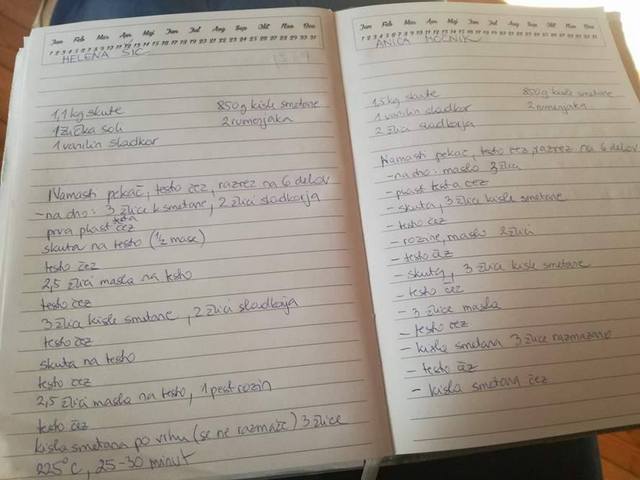 Jan Feb Mar Apr Maj Jun Jul Avg Sep Okt Nov Dec
1 2 3 4 5 6 7 8 9 10 11 12 13 14 15 16 17 18 19 20 21 22 23 24 25 26 27 28 29 30 31
HELENA ŠIC
1,1 kg skute 850g kisle smetane
1 žlička soli 2 rumenjaka
1 vanilin sladkor
Namasti pekač, testo čez, razrez na 6 delov
- na dno: 3 žlice k smetane, 2 žlici sladkorja
prva plast testa čez
skuta na testo (1/2 mase)
testo čez
2,5 žlici masla na testo
testo čez
3 žlice kisle smetane, 2 žlici sladkorja
testo čez
skuta na testo
testo čez
2,5 žlici masla na testo, 1 pest rozin
testo čez
kisla smetana po vrhu (se ne razmaže) 3 žlice
225°C, 25-30 minut
Jan Feb Mar Apr Maj Jun Jul Avg Sep Okt Nov Dec
1 2 3 4 5 6 7 8 9 10 11 12 13 14 15 16 17 18 19 20 21 22 23 24 25 26 27 28 29 30 31
ANICA MOČNIK
1,5 kg skute 850g kisle smetane
1 vanilin sladkor 2 rumenjaka
2 žlici sladkorja
Namasti pekač, testo čez, razrez na 6 delov
- na dno: maslo 3 žlici
- plast testa čez
- skuta, 3 žlice kisle smetane
- testo čez
- rozine, maslo 2 žlici
- testo čez
- skute, 3 žlice kisle smetane
- testo čez
- 3 žlice masla
- testo čez
- kisla smetana 3 žlice razmazano
- testo čez
- kisla smetana čez